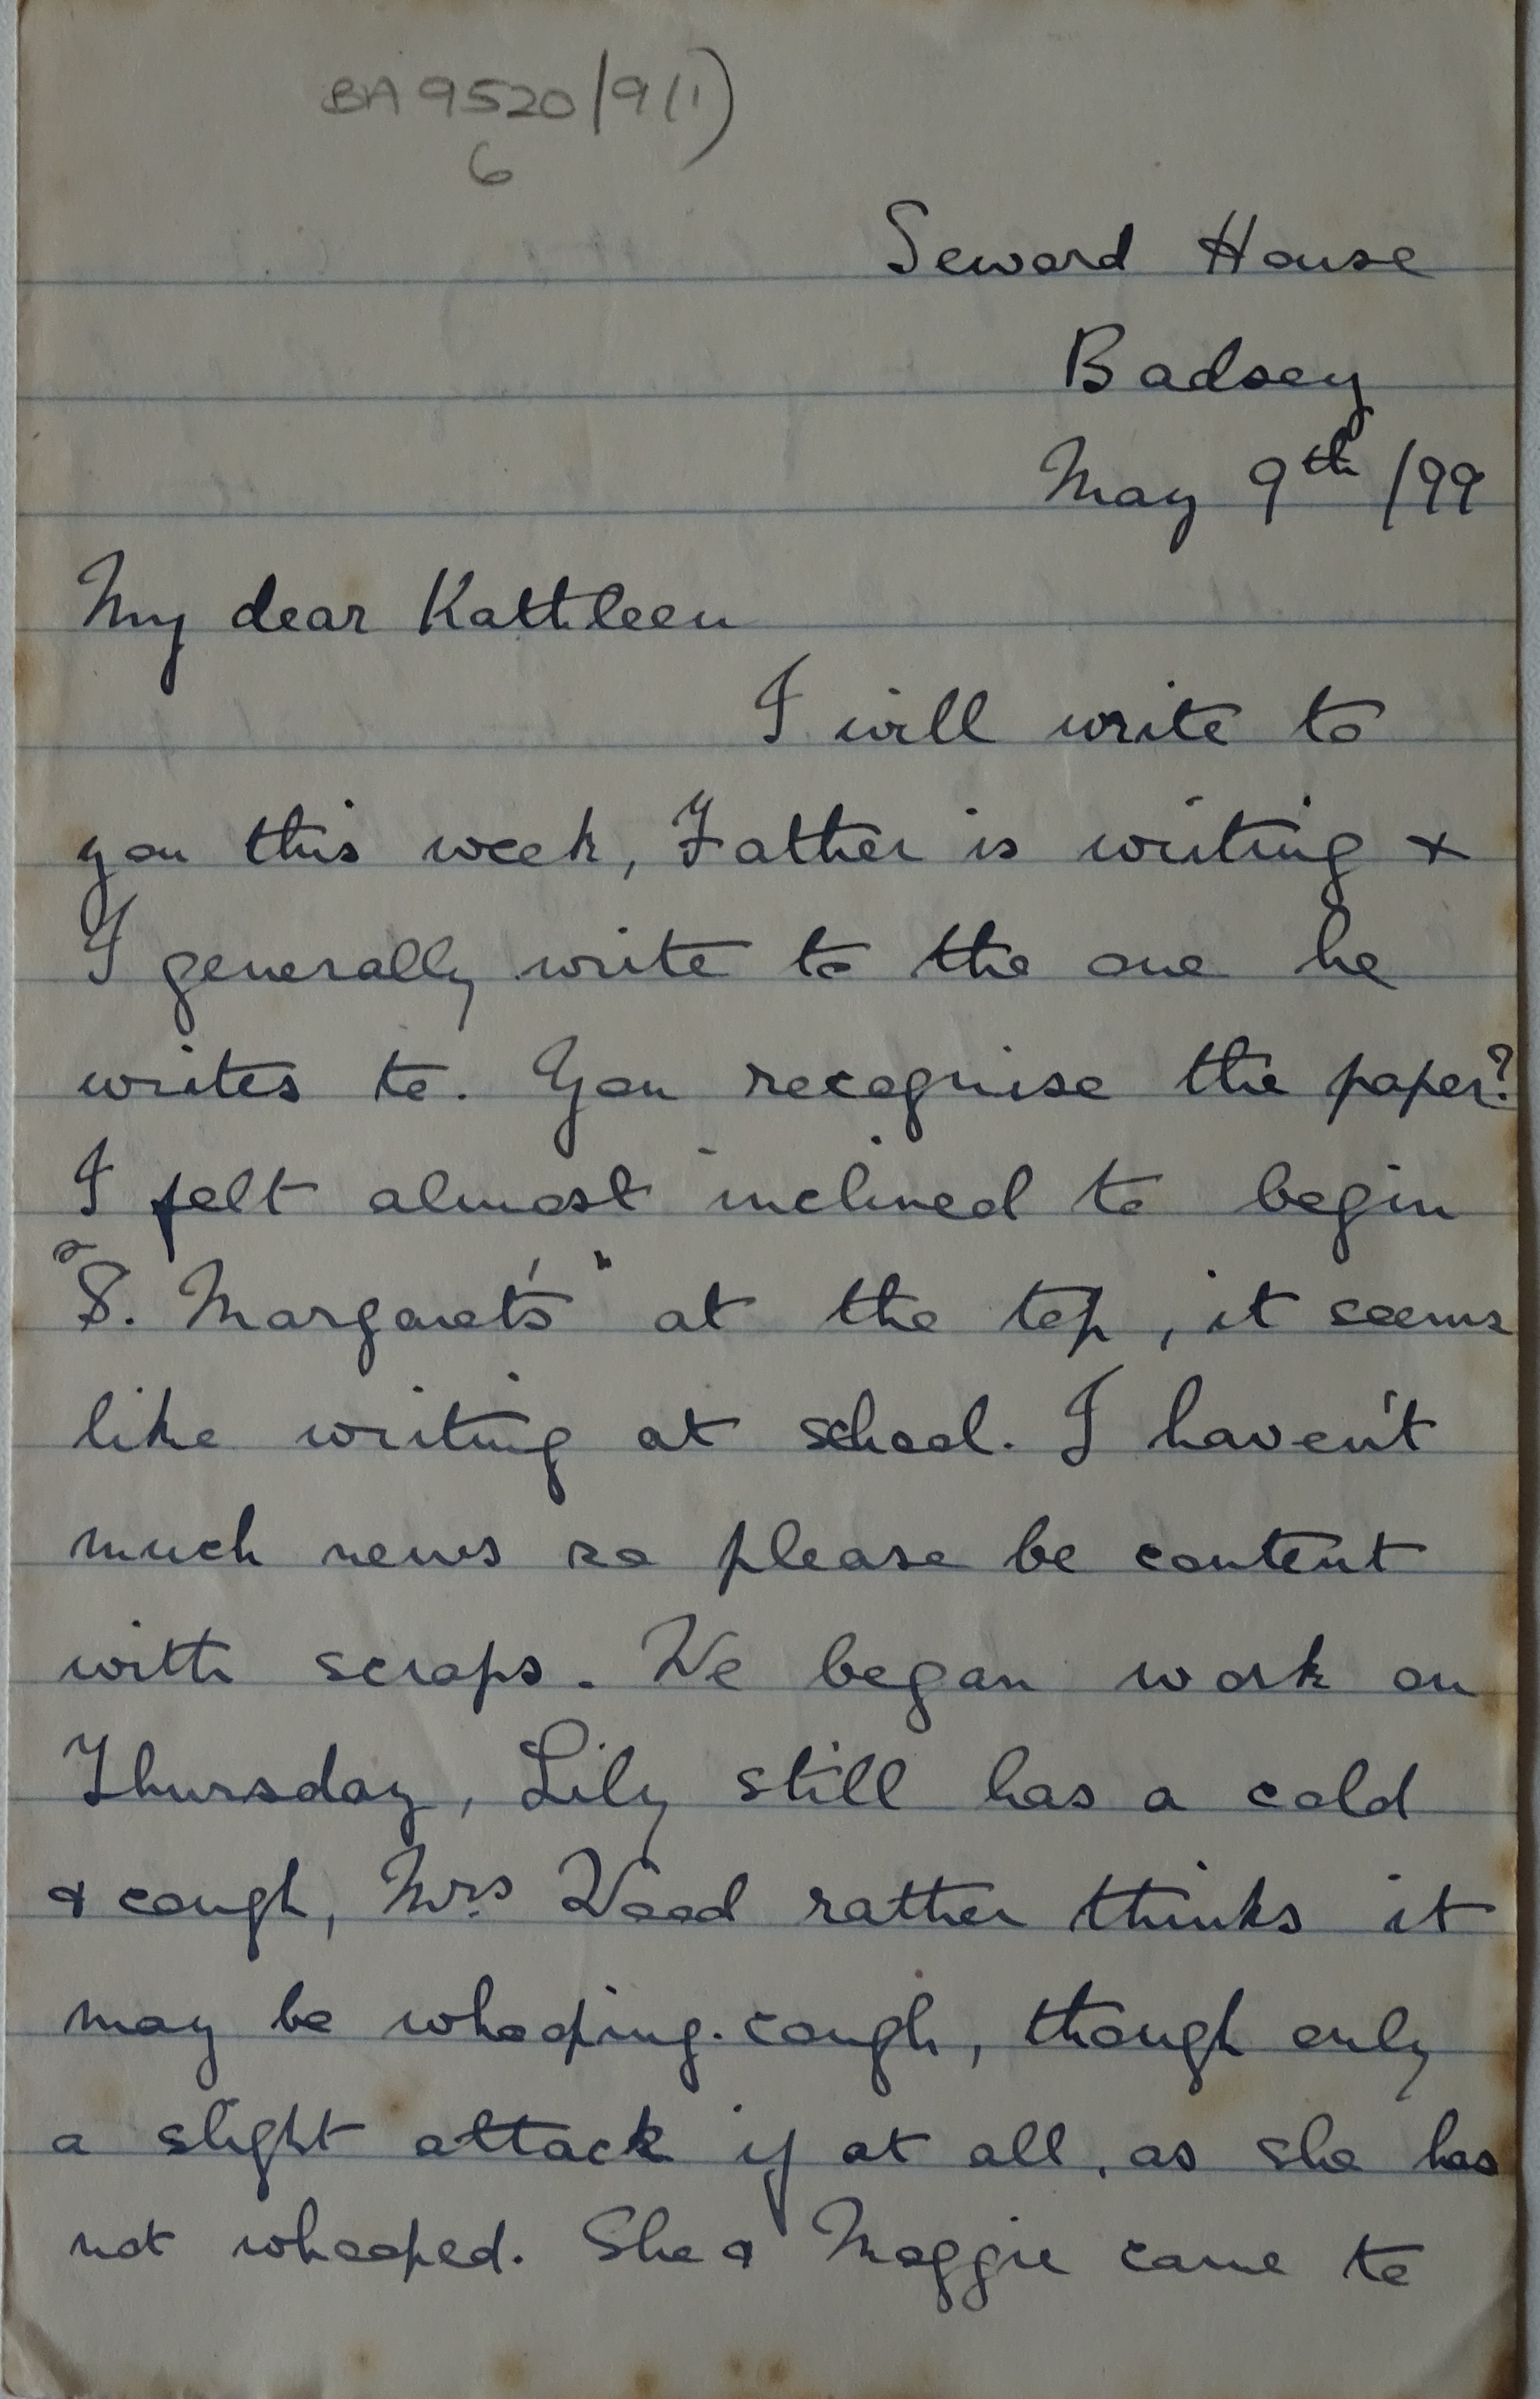 BA 9520/9(1)
6
Seward House
Badsey
May 9th /99
My dear Kathleen
I will write to
you this week, Father is writing &
I generally write to the one he
writes to. You recognise the paper?
I felt almost inclined to begin
"S. Margaret's" at the top, it seems
like writing at school. I haven't
much news so please be content
with scraps. We began work on
Thursday, Lily still has a cold
& cough, Mrs Wood rather thinks it
may be whooping-cough, though only
a slight attack if at all, as she has
not whooped. She & Maggie came to